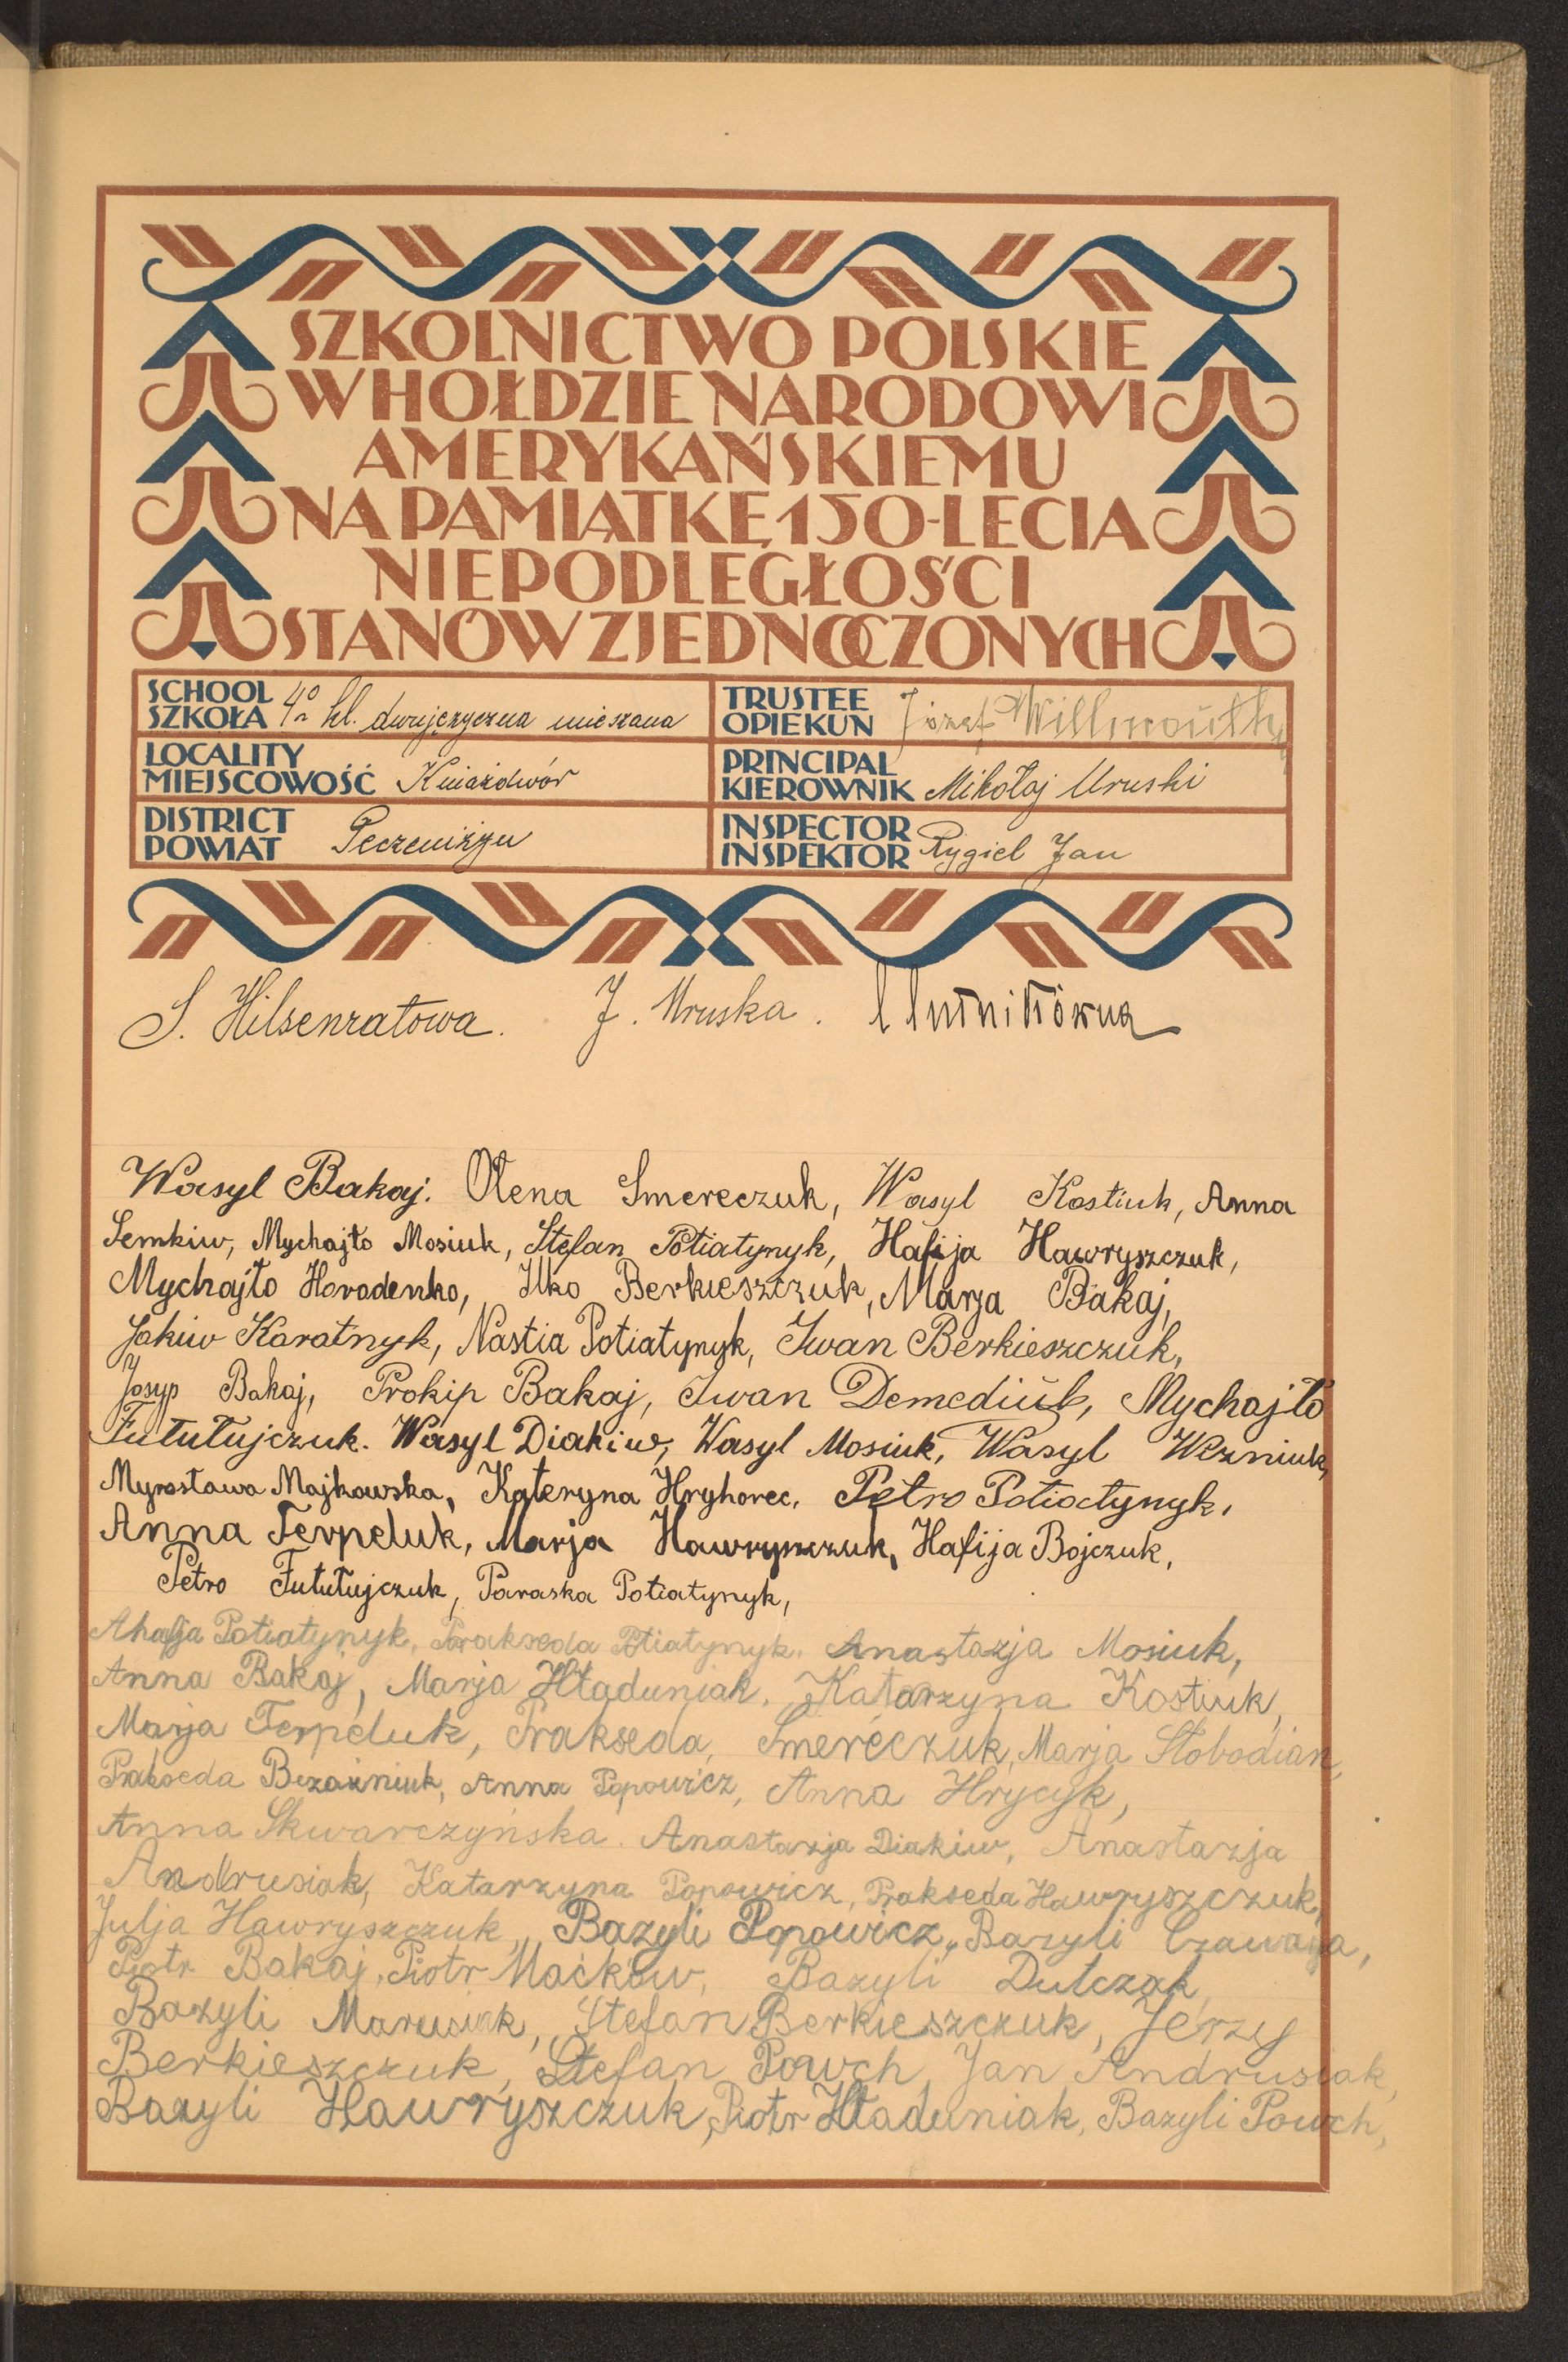 SZKOLNICTWO POLSKIE
W HOŁDZIE NARODOWI
AMERYKAŃSKIEMU
NA PAMIĄTKĘ 150-LECIA
NIEPODLEGŁOŚCI
STANÓW ZJEDNOCZONYCH
SCHOOL
SZKOŁA 4o kl. dwujęzyczna mieszana
TRUSTEE
OPIEKUN Józef Willmouth
LOCALITY
MIEJSCOWOŚĆ Kniaźdwór
PRINCIPAL
KIEROWNIK Mikołaj Uruski
DISTRICT
POWIAT Peczeniżyn
INSPECTOR
INSPEKTOR Rygiel Jan
S. Hilsenratowa. J. Uruska.
Wasyl Bakaj. Ołena Smereczuk, Wasyl Kostiuk, Anna
Semkiw, Mychajło Mosiuk, Stefan Potiatynyk, Hafija Hawryszczuk,
Mychajło Horodenko, Ilko Berkieszczuk, Marja Bakaj,
Jakiw Karatnyk, Nastia Potiatynyk, Iwan Berkieszczuk,
Josyp Bakaj, Prokip Bakaj, Iwan Demediuk, Mychajło
Fututujczuk. Wasyl Diakiw, Wasyl Mosiuk, Wasyl Wezniuk,
Myrosława Majkowska, Kateryna Hryhorec, Petro Potiatynyk,
Anna Terpeluk, Marja Hawryszczuk, Hafija Bojczuk,
Petro Fututujczuk, Paraska Potiatynyk,
Ahafja Potiatynyk, Prakseda Potiatynyk, Anastazja Mosiuk,
Anna Bakaj, Marja Hładuniak, Katarzyna Kostiuk,
Marja Terpeluk, Prakseda, Smereczuk, Marja Słobodian,
Prakseda Bezażniuk, Anna Popowicz, Anna Hrycyk,
Anna Skwarczyńska. Anastazja Diakiw, Anastazja
Andrusiak, Katarzyna Popowicz, Prakseda Hawryszczuk,
Julja Hawryszczuk, Bazyli Popowicz, Bazyli
Piotr Bakaj, Piotr Maćków, Bazyli Dutczak,
Bazyli Marusiak, Stefan Berkieszczuk, Jerzy
Berkieszczuk, Stefan Powch, Jan Andrusiak,
Bazyli Hawryszczuk, Piotr Hładuniak, Bazyli Powch,